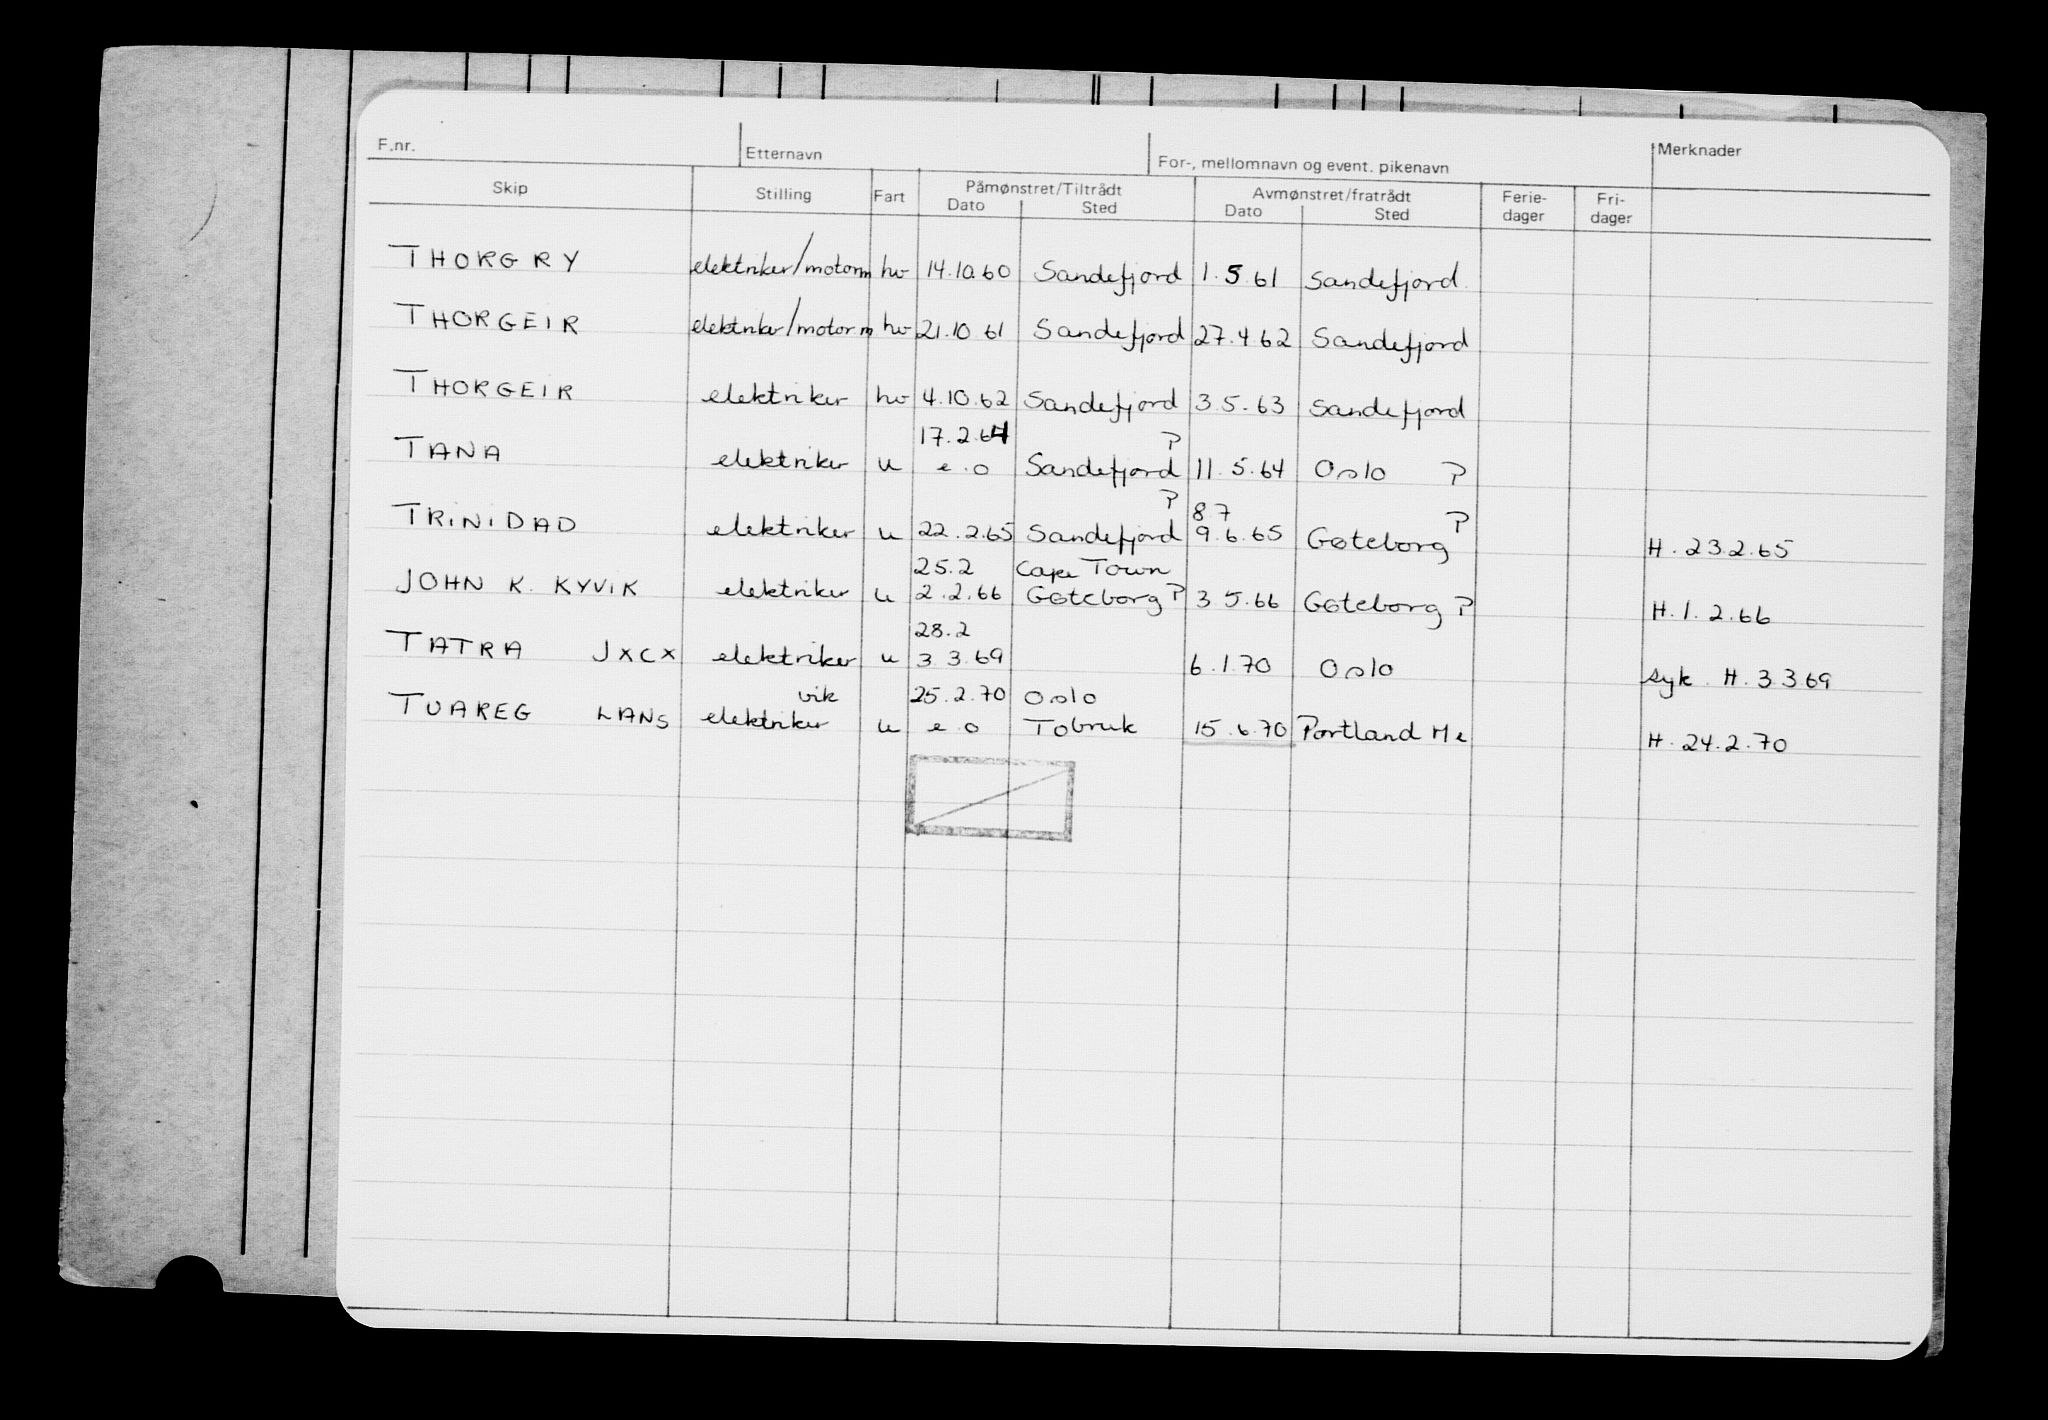 F.nr. Etternavn For-, mellomnavn og event. pikenavn Merknader
Skip Stilling Fart Påmønstret/Tiltrådt Avmønstret/fratrådt Ferie- Fri-
Dato Sted Dato Sted dager dager
THORGRY elektriker/motorm hv 14.10.60 Sandefjord 1.5.61 Sandefjord
THORGEIR elektriker/motorm hv 21.10.61 Sandefjord 27.4.62 Sandefjord
THORGEIR elektriker hv 4.10.62 Sandefjord 3.5.63 Sandefjord
17.2.64 ?
TANA elektriker u e.o Sandefjord 11.5.64 Oslo ?
? 8.7 ?
TRINIDAD elektriker u 22.2.65 Sandefjord 9.6.65 Gøteborg H. 23.2.65
25.2 Cape Town
JOHN K. KYVIK elektriker u 2.2.66 Gøteborg ? 3.5.66 Gøteborg ? H. 1.2.66
28.2
TATRA JXCX elektriker u 3.3.69 6.1.70 Oslo syk. H. 3.3.69
vik 25.2.70 Oslo
TUAREG LANS elektriker u e.o Tobruk 15.6.70 Portland Me H. 24.2.70